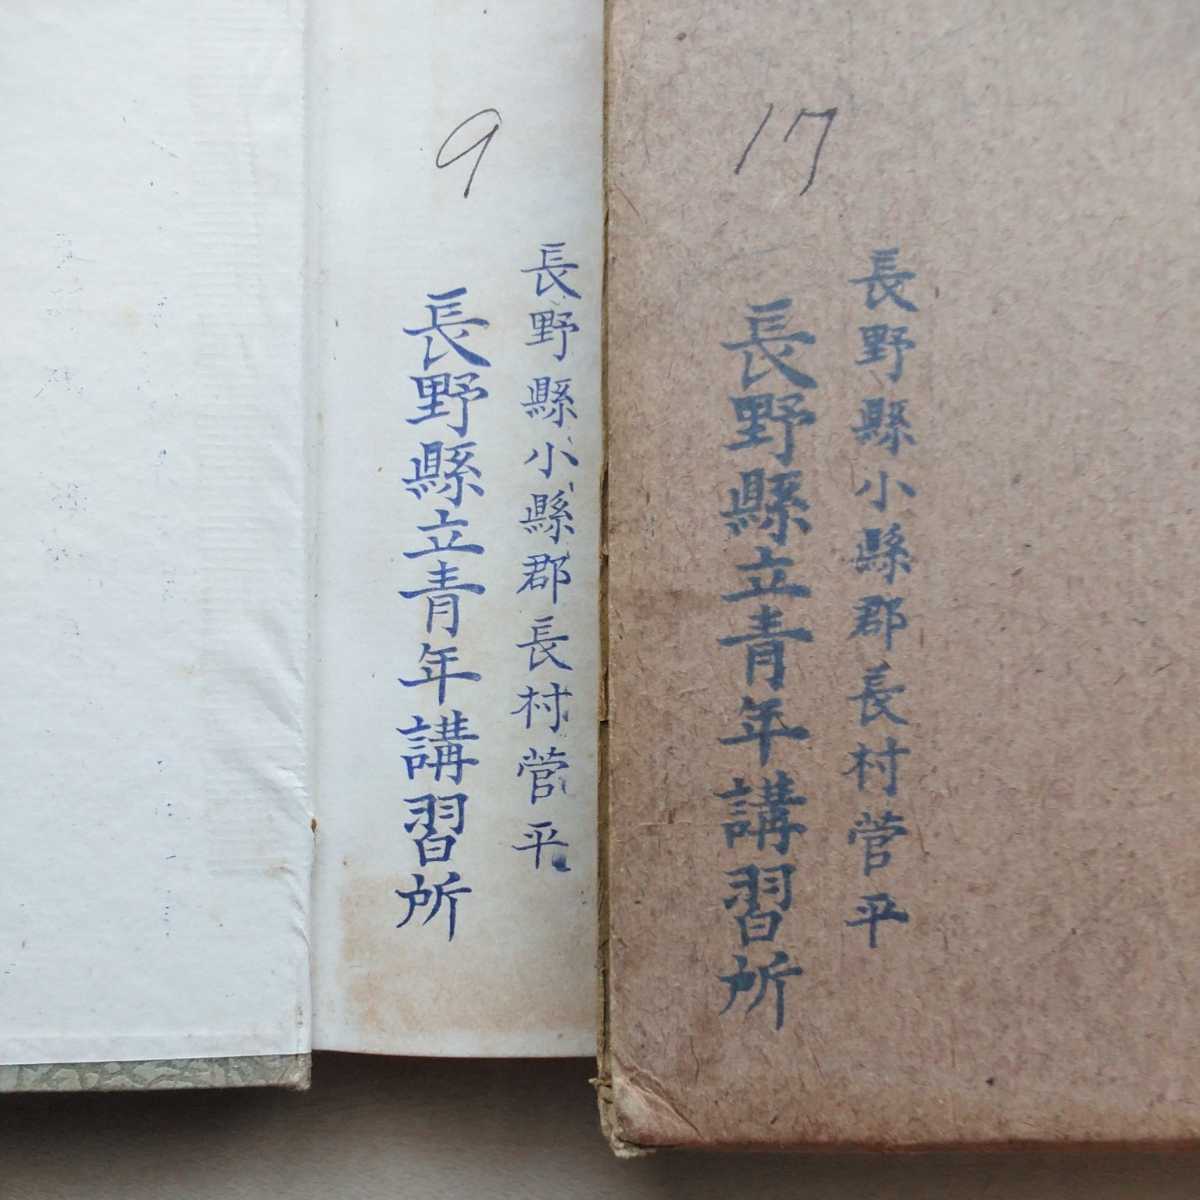 9
長野縣小縣郡長村菅平
長野縣立青年講習所
17
長野縣小縣郡長村菅平
長野縣立青年講習所